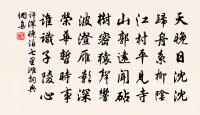 天晚日沈沈
歸舟系柳陰
江村平見寺
山郭遠聞砧
樹密猿聲響
波澄雁影深
榮華暫時事
誰識子陵心
許渾晚泊七里灘詞典
網書